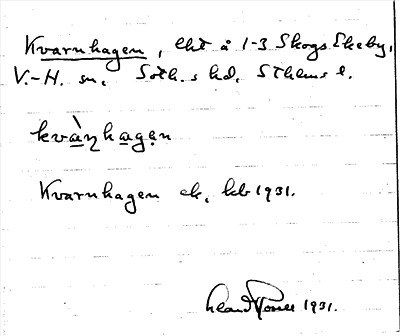 Kvarnhagen, lht å 1-3 Skogs-Ekeby,
V.-H. sn. Soth.s hd. Sthlms l.
kvàŋhagen
Kvarnhagen ek. kb 1931.
1931.